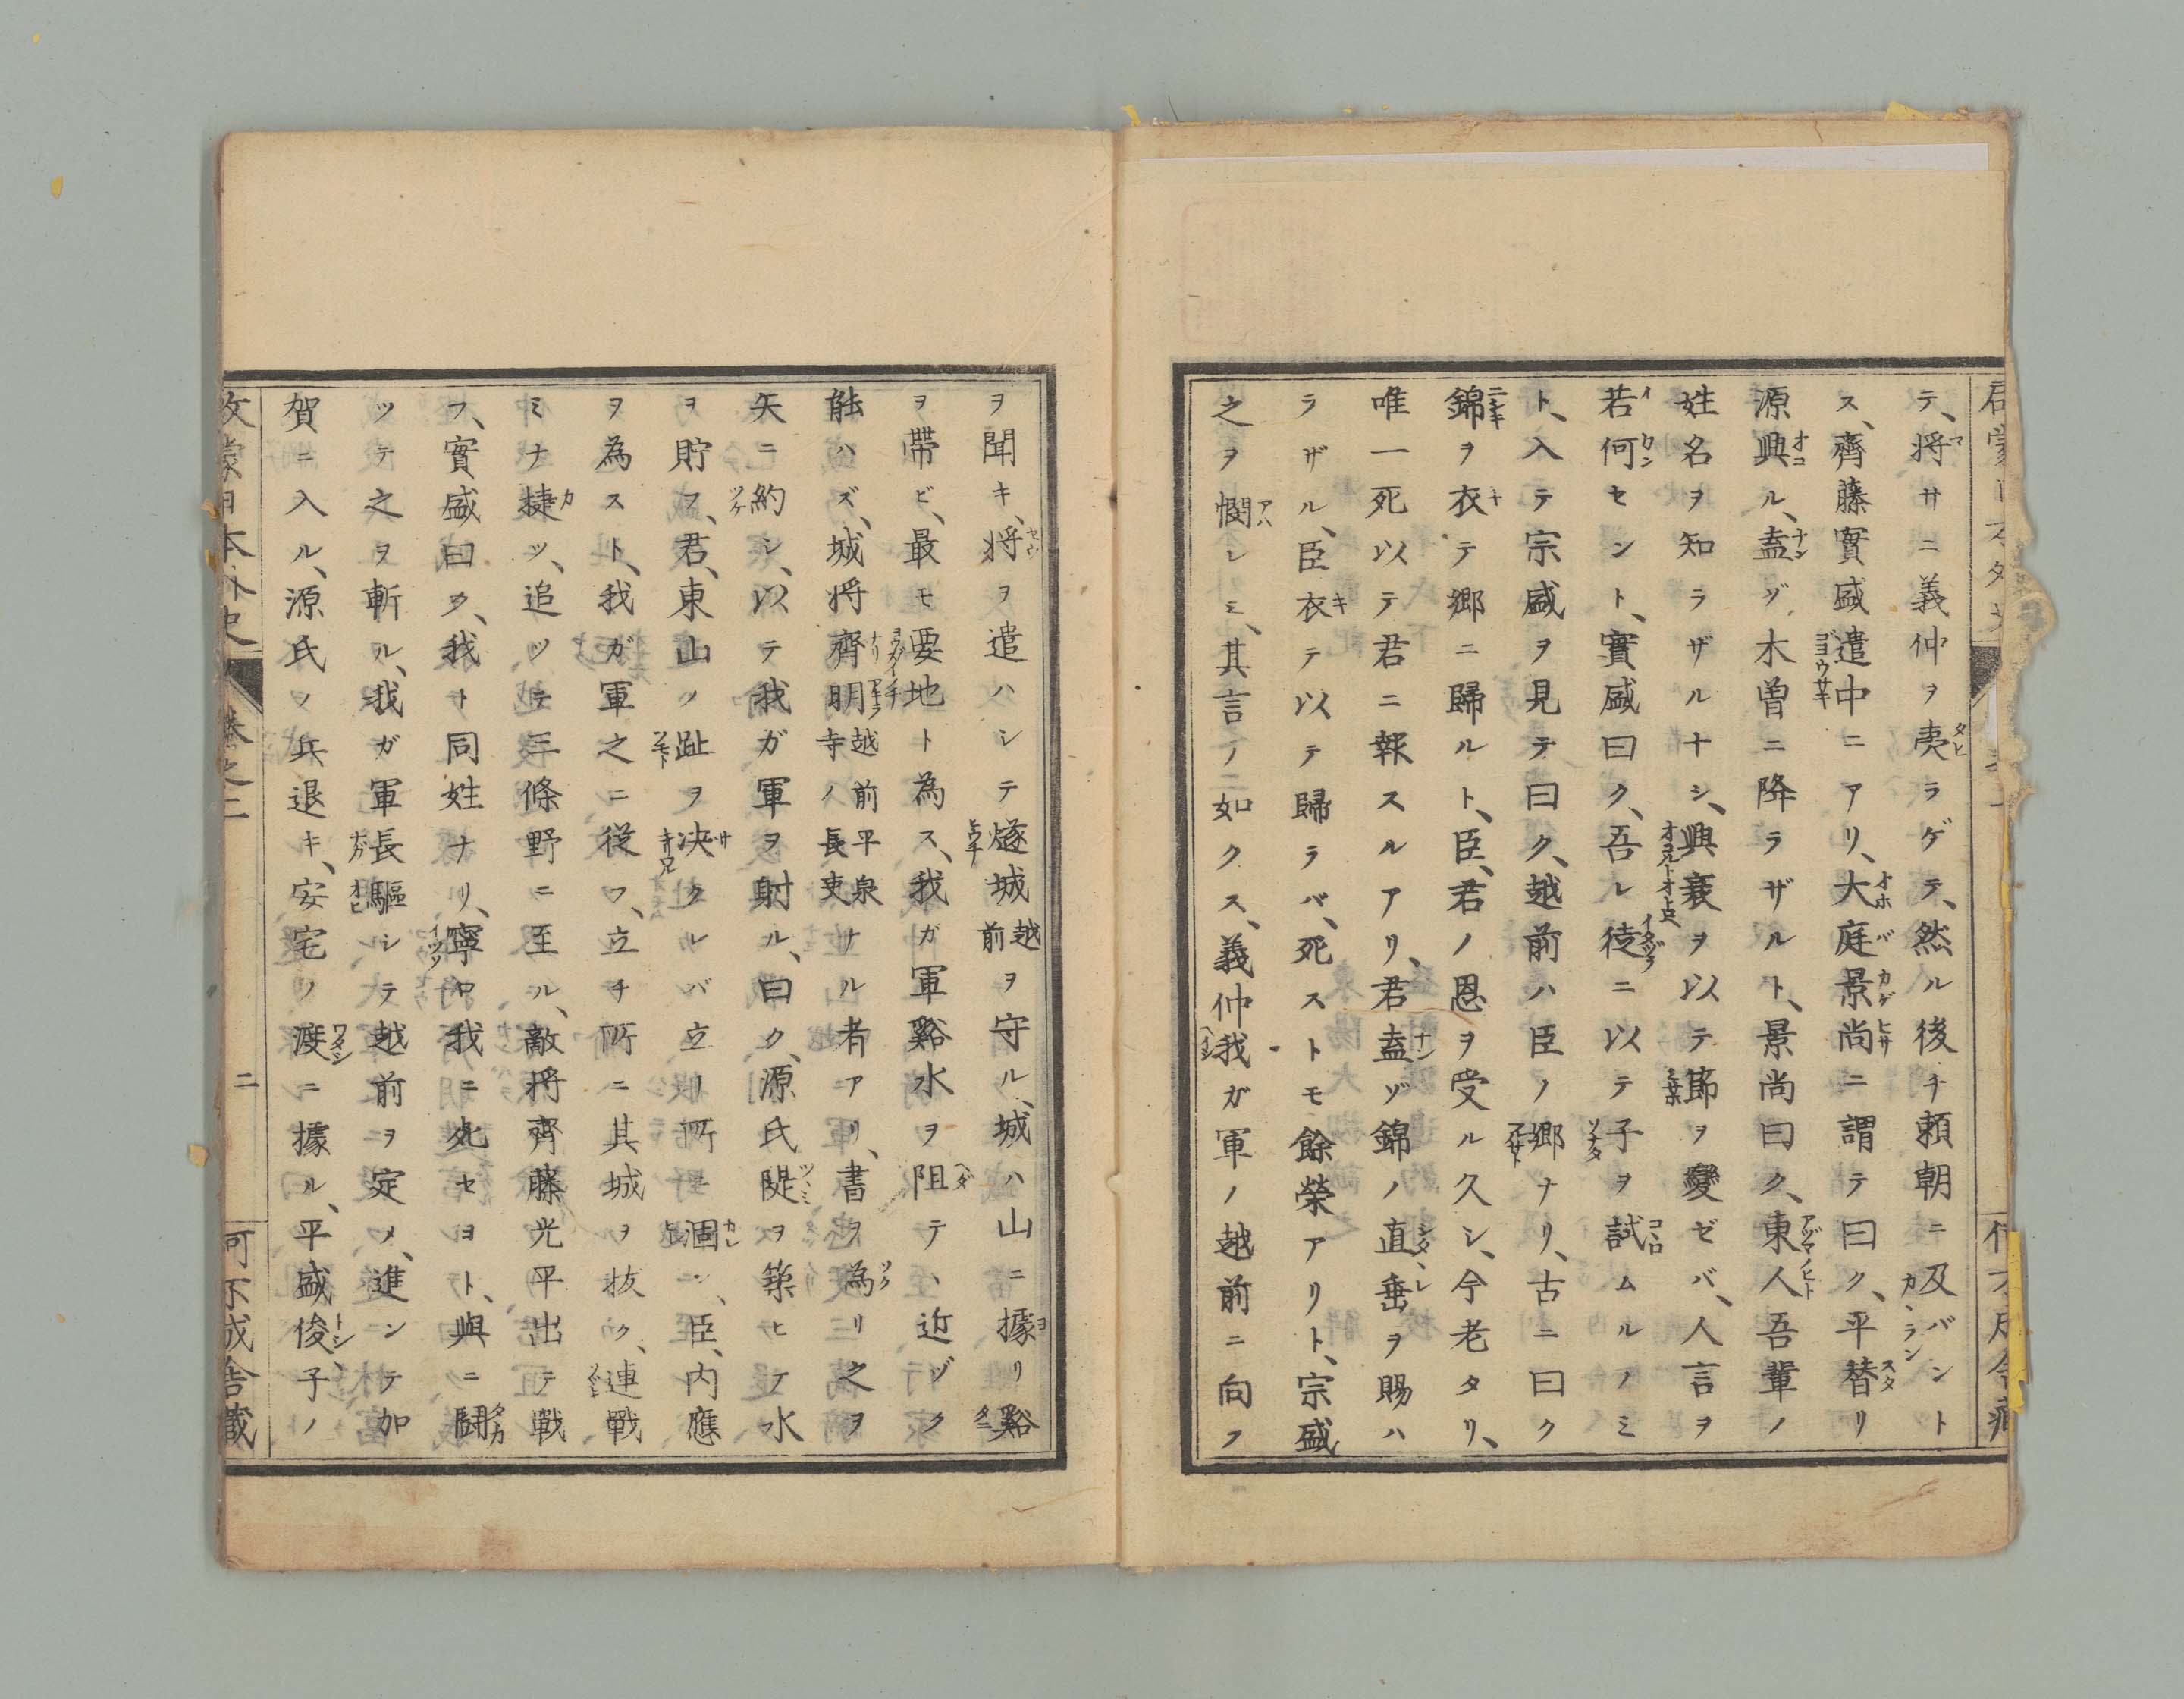 テ、将サニ義仲ヲ夷ラゲテ、然ル後チ頼朝ニ及バント
ス、齊藤實盛遣中ニアリ、大庭景尚ニ謂テ曰ク、平替リ
源興ル、盍ゾ木曽ニ降ラザルト、景尚曰ク、東人吾輩ノ
姓名ヲ知ラザルナシ、興衰ヲ以テ節ヲ變ゼバ、人言ヲ
若何セント、實盛曰ク、吾レ徒ニ以テ子ヲ試ムルノミ
ト、入テ宗盛ヲ見テ曰ク、越前ハ臣ノ郷ナリ、古ニ曰ク
錦ヲ衣テ郷ニ歸ルト、臣、君ノ恩ヲ受ル久シ、今老タリ、
唯一死以テ君ニ報スルアリ、君盍ゾ錦ノ直垂ヲ賜ハ
ラザル、臣衣テ以テ歸ラバ、死ストモ餘榮アリト、宗盛
之ヲ憫レミ、其言ノ如クス、義仲我ガ軍ノ越前ニ向フ
ヲ聞キ、将ヲ遣ハシテ燧城越前ヲ守ル、城ハ山ニ據リ谿
ヲ帶ビ、最モ要地ト為ス、我ガ軍谿水ヲ阻テ、近ヅク
能ハズ、城将齊明越前平泉寺ノ長吏ナル者アリ、書ヲ為リ之ヲ
矢ニ約シ、以テ我ガ軍ヲ射ル、曰ク、源氏隄ヲ築ヒテ水
ヲ貯フ、君、東山ノ趾ヲ決クレバ立ーニ涸ン、臣、内應
ヲ為スト、我ガ軍之ニ從フ、立チ所ニ其城ヲ抜ク、連戰
ミナ捷ツ、追ツテ三條野ニ至ル、敵将齊藤光平出テ戰
フ、實盛曰ク、我ト同姓ナリ、寧ロ我ニ死セヨト、與ニ鬪
ツテ之ヲ斬ル、我ガ軍長驅シテ越前ヲ定メ、進ンテ加
賀ニ入ル、源氏ノ兵退キ、安宅ノ渡ニ據ル、平盛俊子ノ
日本外史 卷之二 二 可不成舎藏